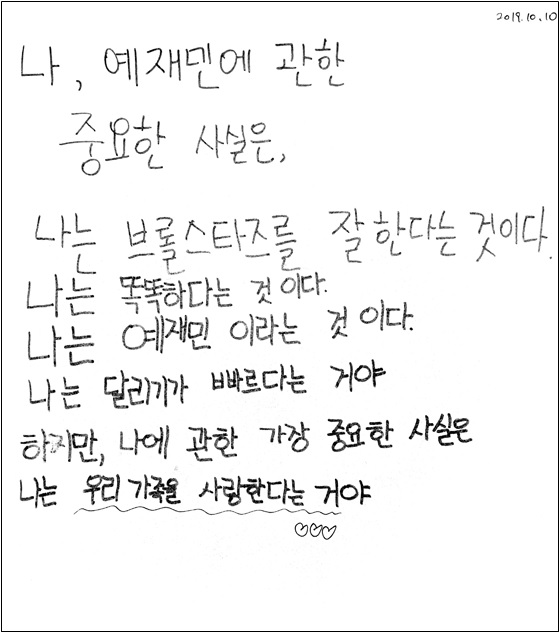 2019.10.10
나, 예재민에 관한
중요한 사실은,
나는 브롤스타즈를 잘한다는 것이다.
나는 똑똑하다는 것이다.
나는 예재민 이라는 것이다.
나는 달리기가 빠르다는 거야
하지만, 나에 관한 가장 중요한 사실은
나는 우리 가족을 사랑한다는 거야